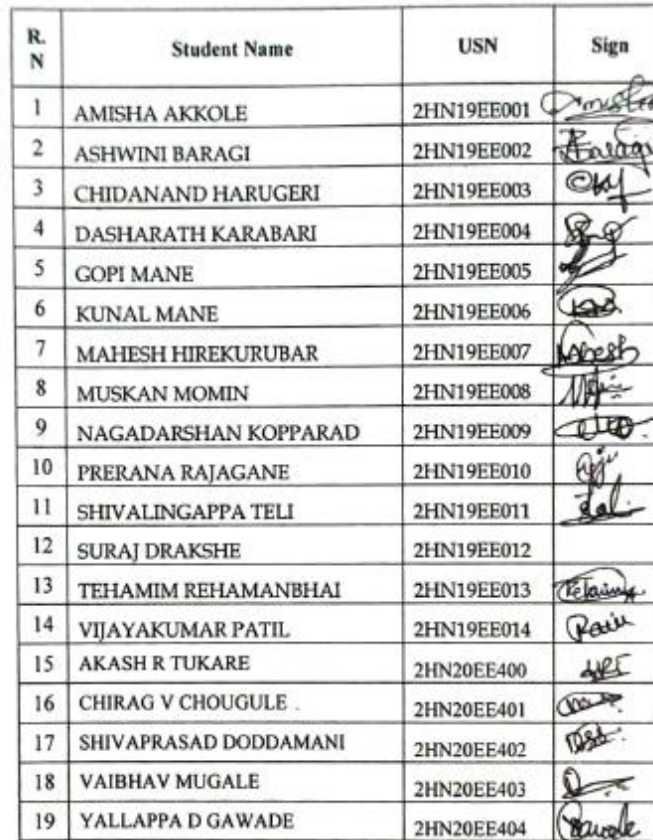 R. N Student Name USN Sign
1 AMISHA AKKOLE 2HN19EE001 Amisha
2 ASHWINI BARAGI 2HN19EE002 ABaragi
3 CHIDANAND HARUGERI 2HN19EE003
4 DASHARATH KARABARI 2HN19EE004
5 GOPI MANE 2HN19EE005
6 KUNAL MANE 2HN19EE006
7 MAHESH HIREKURUBAR 2HN19EE007 Mahesh
8 MUSKAN MOMIN 2HN19EE008
9 NAGADARSHAN KOPPARAD 2HN19EE009
10 PRERANA RAJAGANE 2HN19EE010
11 SHIVALINGAPPA TELI 2HN19EE011
12 SURAJ DRAKSHE 2HN19EE012
13 TEHAMIM REHAMANBHAI 2HN19EE013
14 VIJAYAKUMAR PATIL 2HN19EE014
15 AKASH R TUKARE 2HN20EE400
16 CHIRAG V CHOUGULE . 2HN20EE401
17 SHIVAPRASAD DODDAMANI 2HN20EE402
18 VAIBHAV MUGALE 2HN20EE403
19 YALLAPPA D GAWADE 2HN20EE404